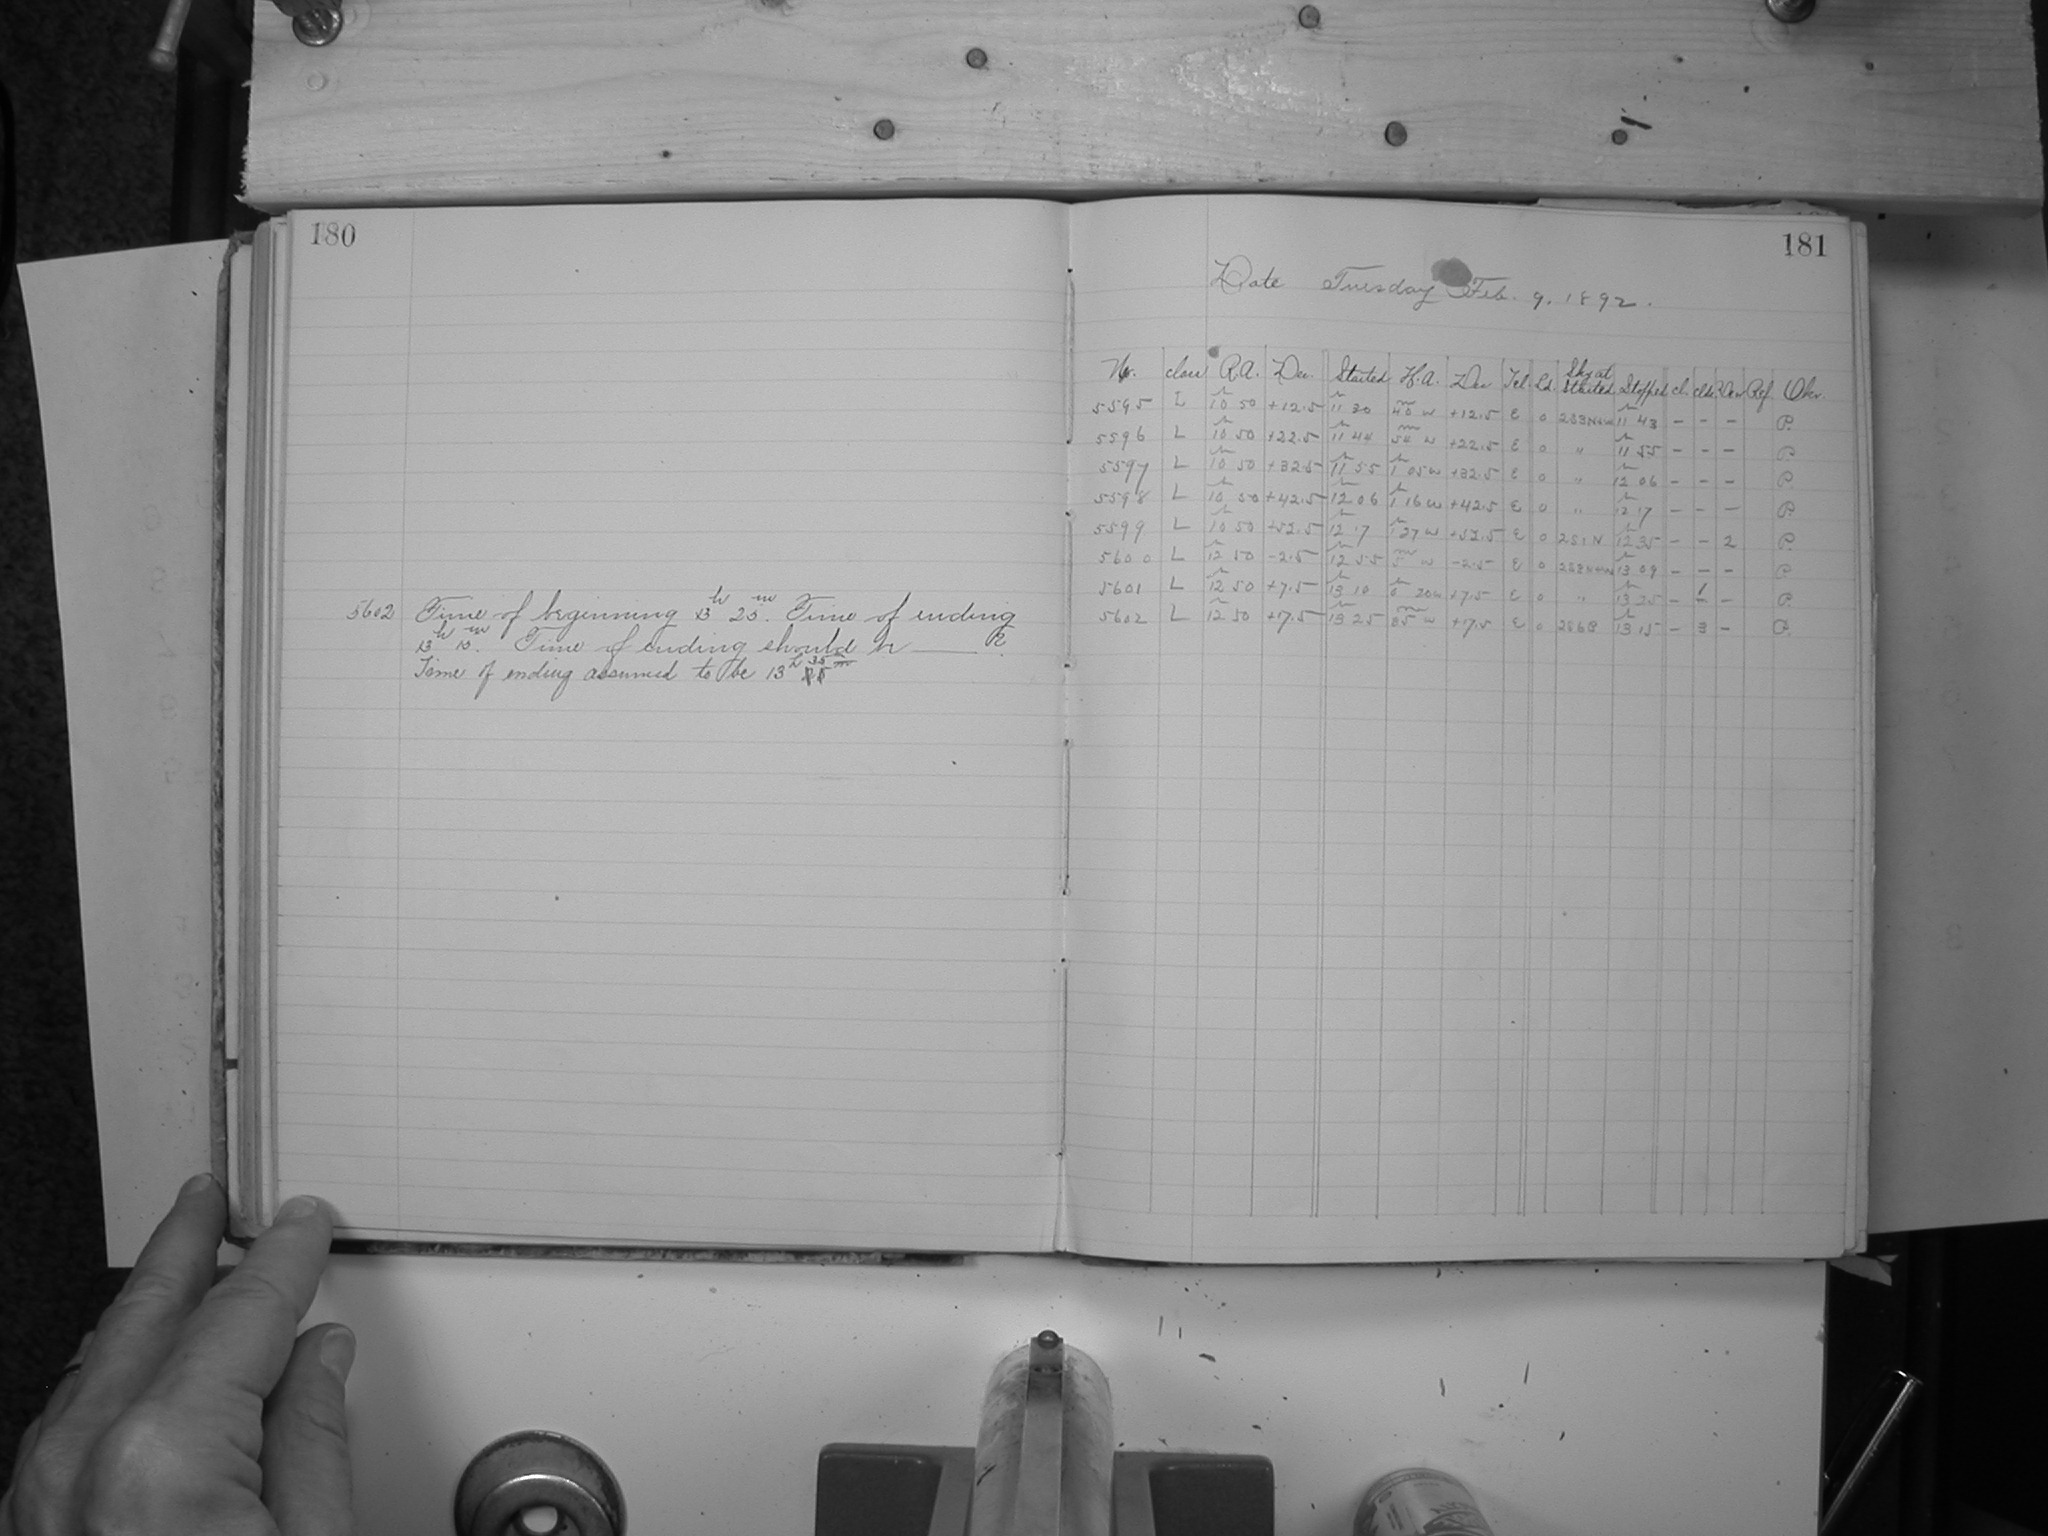 180
5602 Time of beginning 13h 25m. Time of ending
13h 15m. Time of ending should be ____ ?
Time of ending assumed to be 13h 35m
181
Date Tuesday Feb. 9, 1892.
No. class R.A. Dec. Started H.A. Dec Tel. Ld. Sky at Started Stopped cl. clds. Dew Ref. Obsr.
5595 L 10h 50 +12.5 11h 30 40m W +12.5 E 0 11h 43 - - - P.
5596 L 10h 50 +22.5 11h 44 54m W +22.5 E 0 " 11h 55 - - - P.
5597 L 10h 50 +32.5 11h 55 1h 05 W +32.5 E 0 " 12h 06 - - - P.
5598 L 10h 50 +42.5 12h 06 1h 16 W +42.5 E 0 " 12h 17 - - - P.
5599 L 10h 50 +52.5 12h 17 1h 27 W +52.5 E 0 12h 35 - - 2 P.
5600 L 12h 50 -2.5 12h 55 5m W -2.5 E 0 13h 09 - - - P.
5601 L 12h 50 +7.5 13h 10 0h 20 W +7.5 E 0 " 13h 25 - 1 - P.
5602 L 12h 50 +17.5 13h 25 35m W +17.5 E 0 13h 15 - 3 - P.